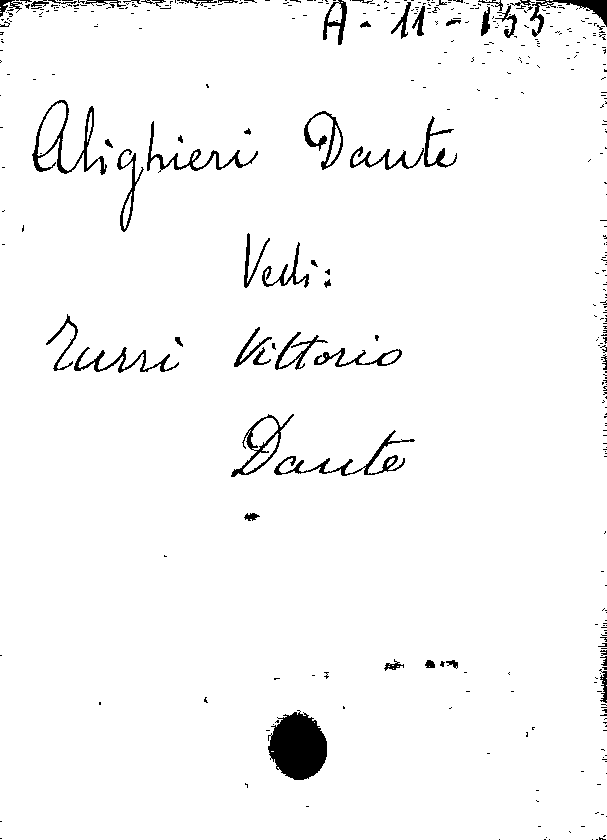 A - 11 - 133
Alighieri Dante
Vedi:
Turri Vittorio
Dante